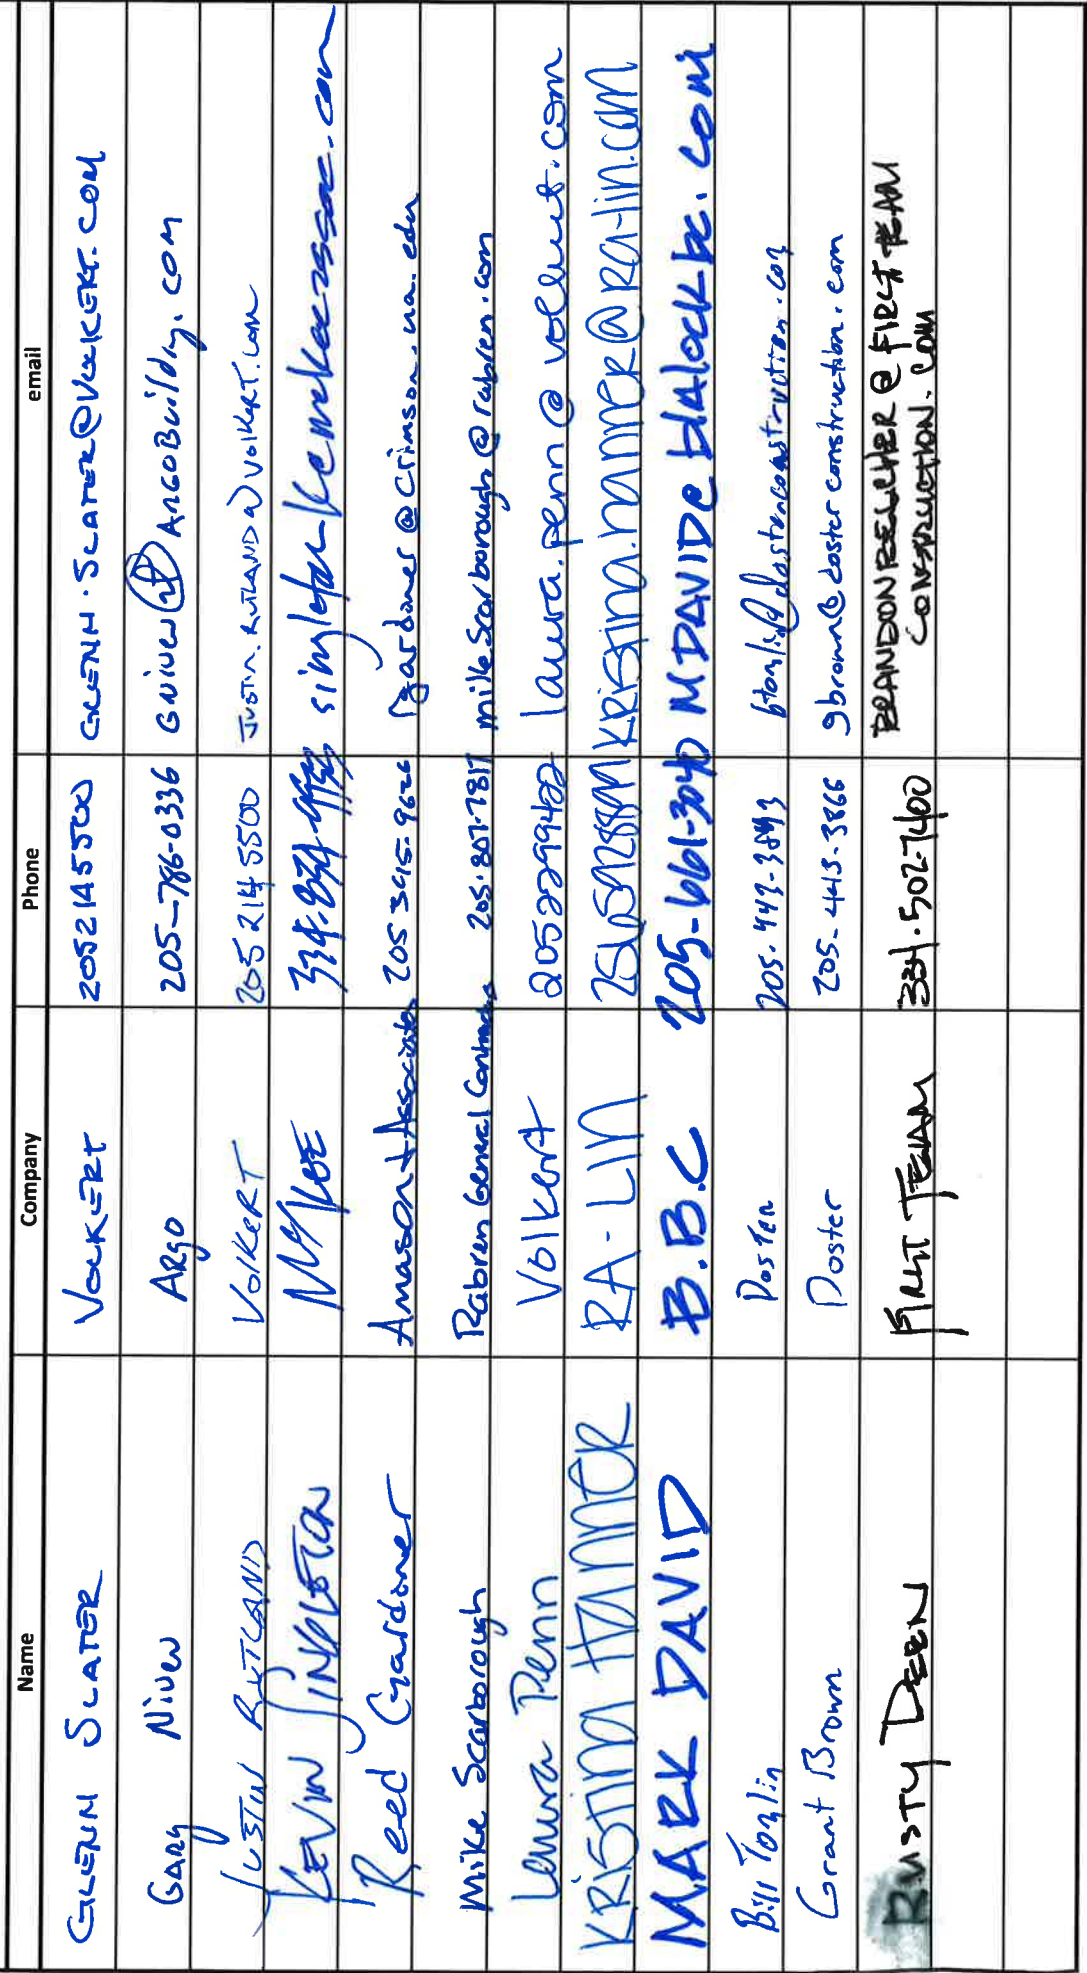 Name Company Phone email
GLENN SLATER VOLKERT 2052145500 GLENN.SLATER@VOLKERT.COM
GARY Niven ARGO 205-786-0336 GNiven@ARGOBuilding.COM
JUSTIN RUTLAND VOLKERT 205 214 5500 JUSTIN.RUTLAND@VOLKERT.COM
KEVIN SINGLETON
Reed Gardner Amason+Associates 205 395-9626 rgardner@crimson.ua.edu
Mike Scarborough Rabren General Contractors 205.807.7817 mikescarborough@rabren.com
Laura Penn Volkert 2052299422 laura.penn@volkert.com
KRISTINA TANNER RA-LIN KRISTINA.TANNER@RA-LIN.COM
MARK DAVID B.B.C 205-661-3040 MDAVID@blalockbc.com
Bill Tomlin Doster 205.443-3843 btomlin@dosterconstruction.com
Grant Brown Doster 205-443-3866 gbrown@dosterconstruction.com
RUSTY DEEN FIRST TEAM 334.502-7400 BRANDONBELCHER@FIRSTTEAM
CONSTRUCTION.COM